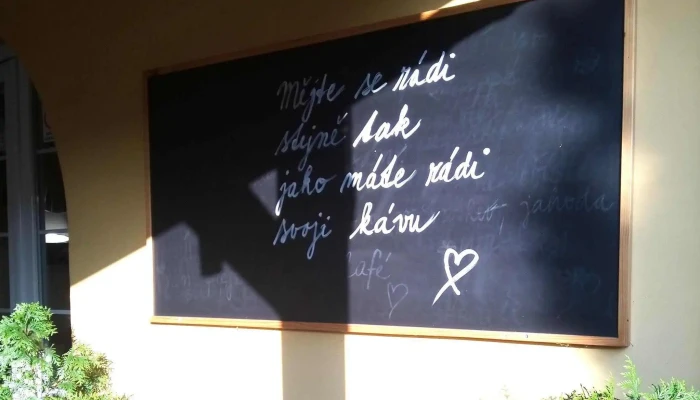 Mějte se rádi
stejně tak
jako máte rádi
svoji kávu
jahoda
Café